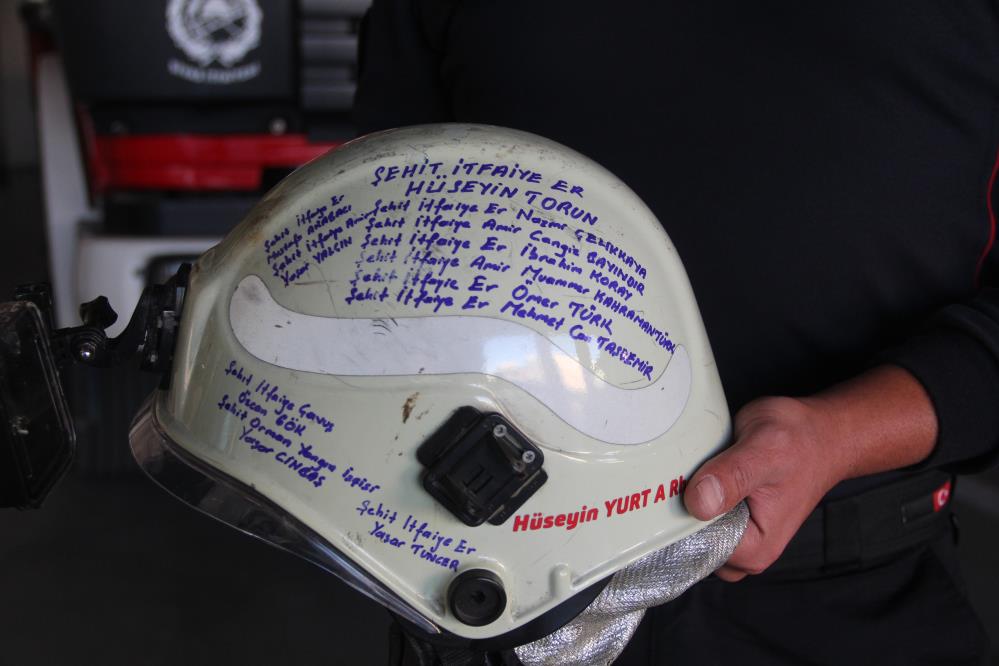 ŞEHİT İTFAİYE ER
HÜSEYİN TORUN
Şehit İtfaiye Er Nazım ÇELİKKAYA
Şehit İtfaiye Amir Cengiz BAYINDIR
Şehit İtfaiye Er İbrahim KORAY
Şehit İtfaiye Amir Muammer KAHRAMANTÜRK
Şehit İtfaiye Er Ömer TÜRK
Şehit İtfaiye Er Mehmet Can TAŞDEMİR
Şehit İtfaiye Er
Mustafa AHABACI
Şehit İtfaiye Amir
Yaşar YALÇIN
Şehit İtfaiye Çavuş
Özcan GÖK
Şehit Orman Yangın İşçisi
Yaşar CİNBAŞ
Şehit İtfaiye Er
Yaşar TUNCER
Hüseyin YURT A